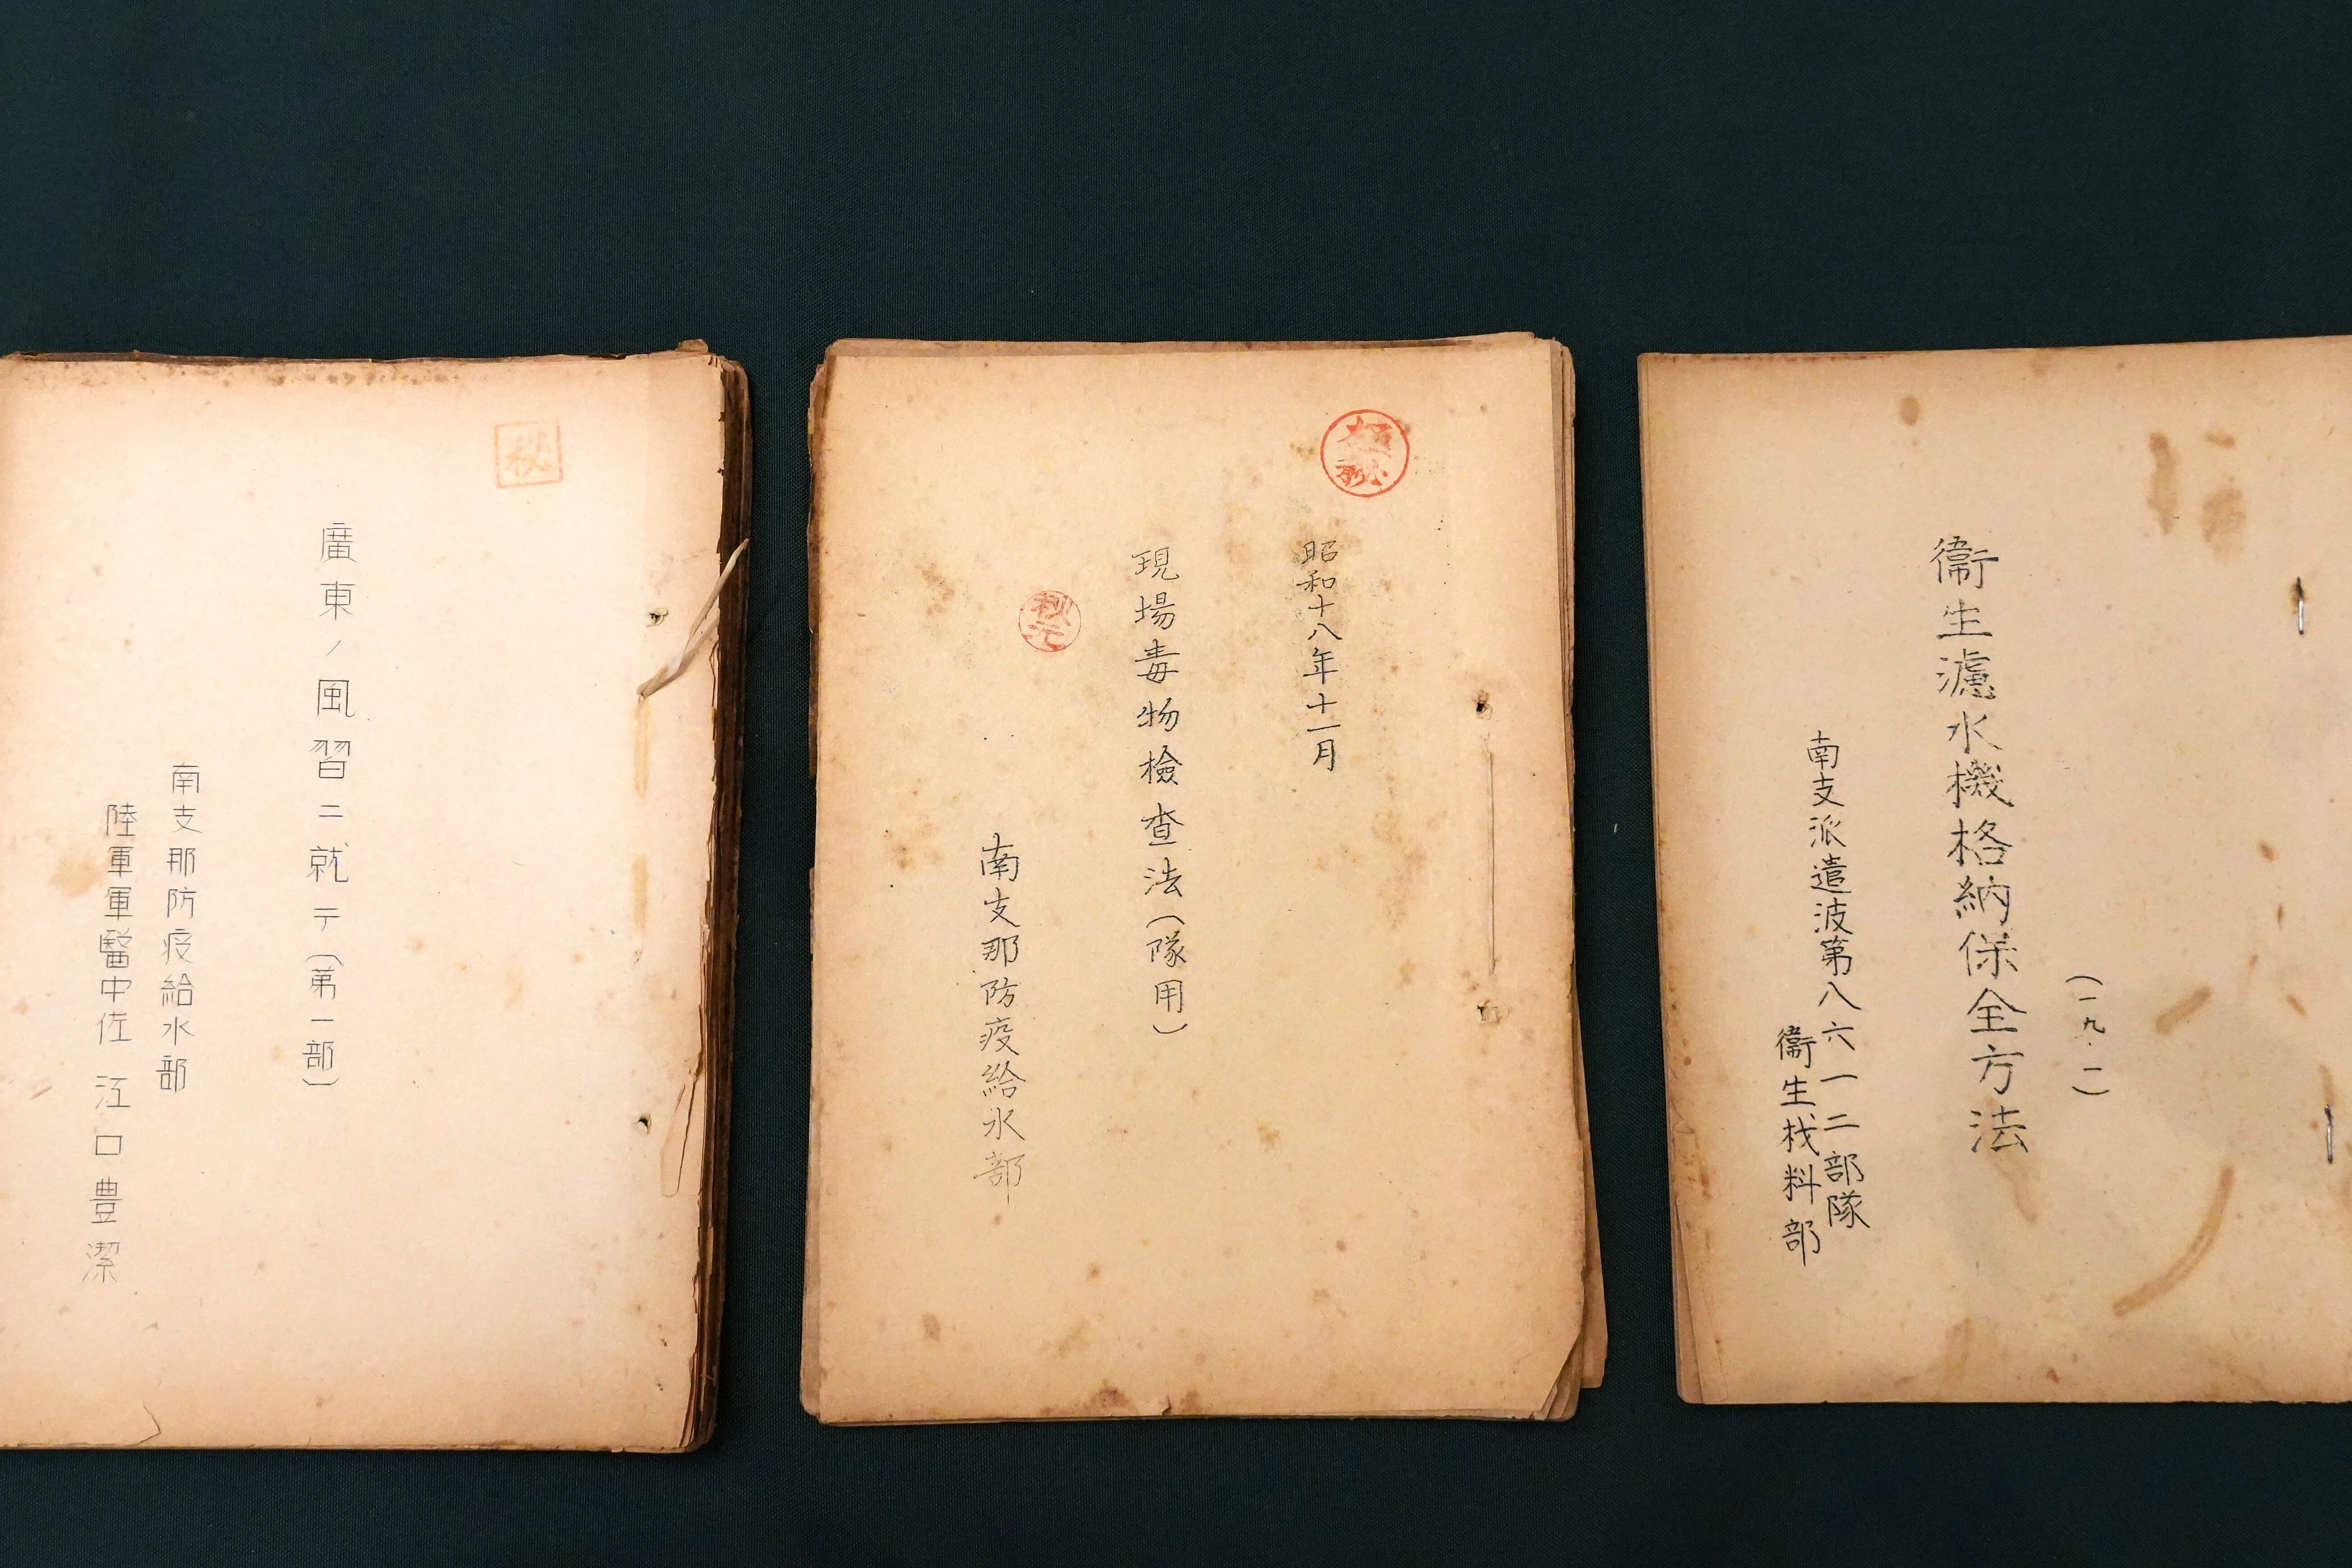 秘
廣東ノ風習ニ就テ（第一部）
南支那防疫給水部
陸軍軍醫中佐 江口豊潔
極秘
昭和十八年十一月
現場毒物檢査法（隊用）
秋元
南支那防疫給水部
（一九・一一）
衞生濾水機格納保全方法
南支派遣波第八六一一二部隊
衞生材料部